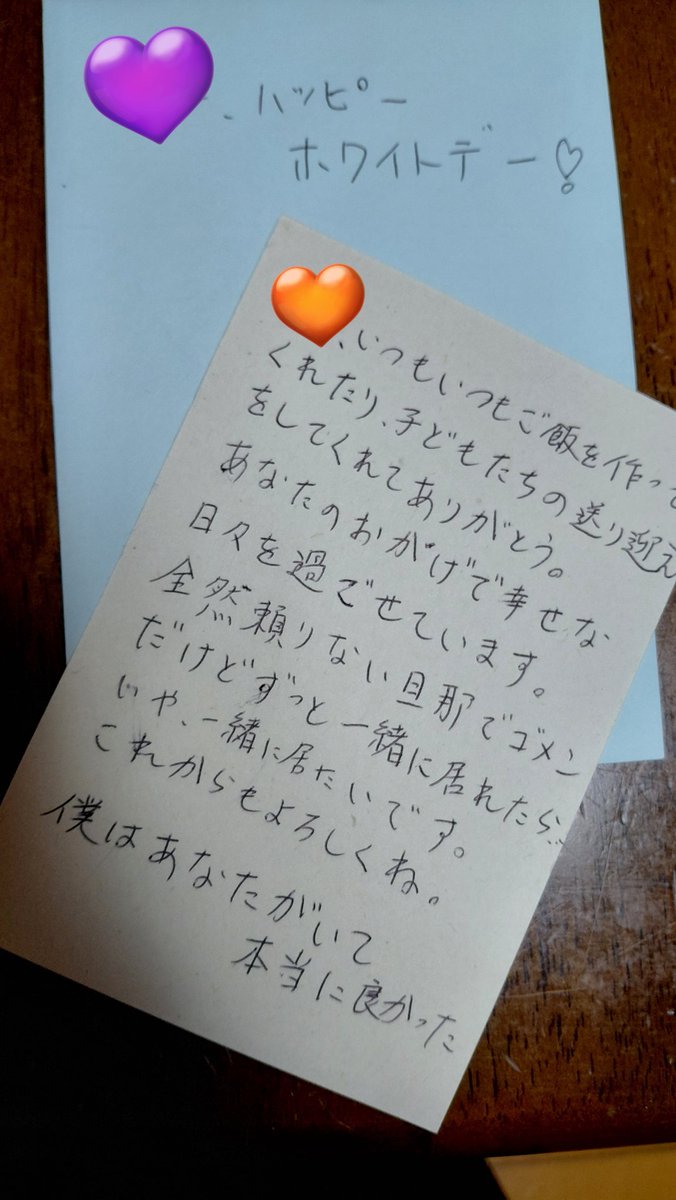 、ハッピー
ホワイトデー♡
、いつもいつもご飯を作って
くれたり、子どもたちの送り迎え
をしてくれてありがとう。
あなたのおかげで幸せな
日々を過ごせています。
全然頼りない旦那でゴメン
だけどずっと一緒に居れたら、
いや、一緒に居たいです。
これからもよろしくね。
僕はあなたがいて
本当に良かった